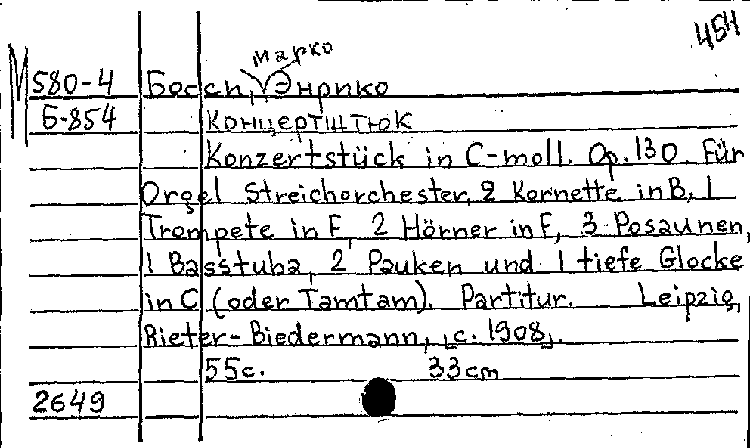 454
Марко
М580-4 Босси, Энрико
Б-854 Концертштюк
Konzertstück in C-moll. Op. 130. Für
Orgel Streichorchester, 2 Kornette in B, 1
Trompete in F, 2 Hörner in F, 3 Posaunen,
1 Basstuba, 2 Pauken und 1 tiefe Glocke
in C (oder Tamtam). Partitur. Leipzig,
Rieter-Biedermann, [c. 1908].
55c. 33cm
2649